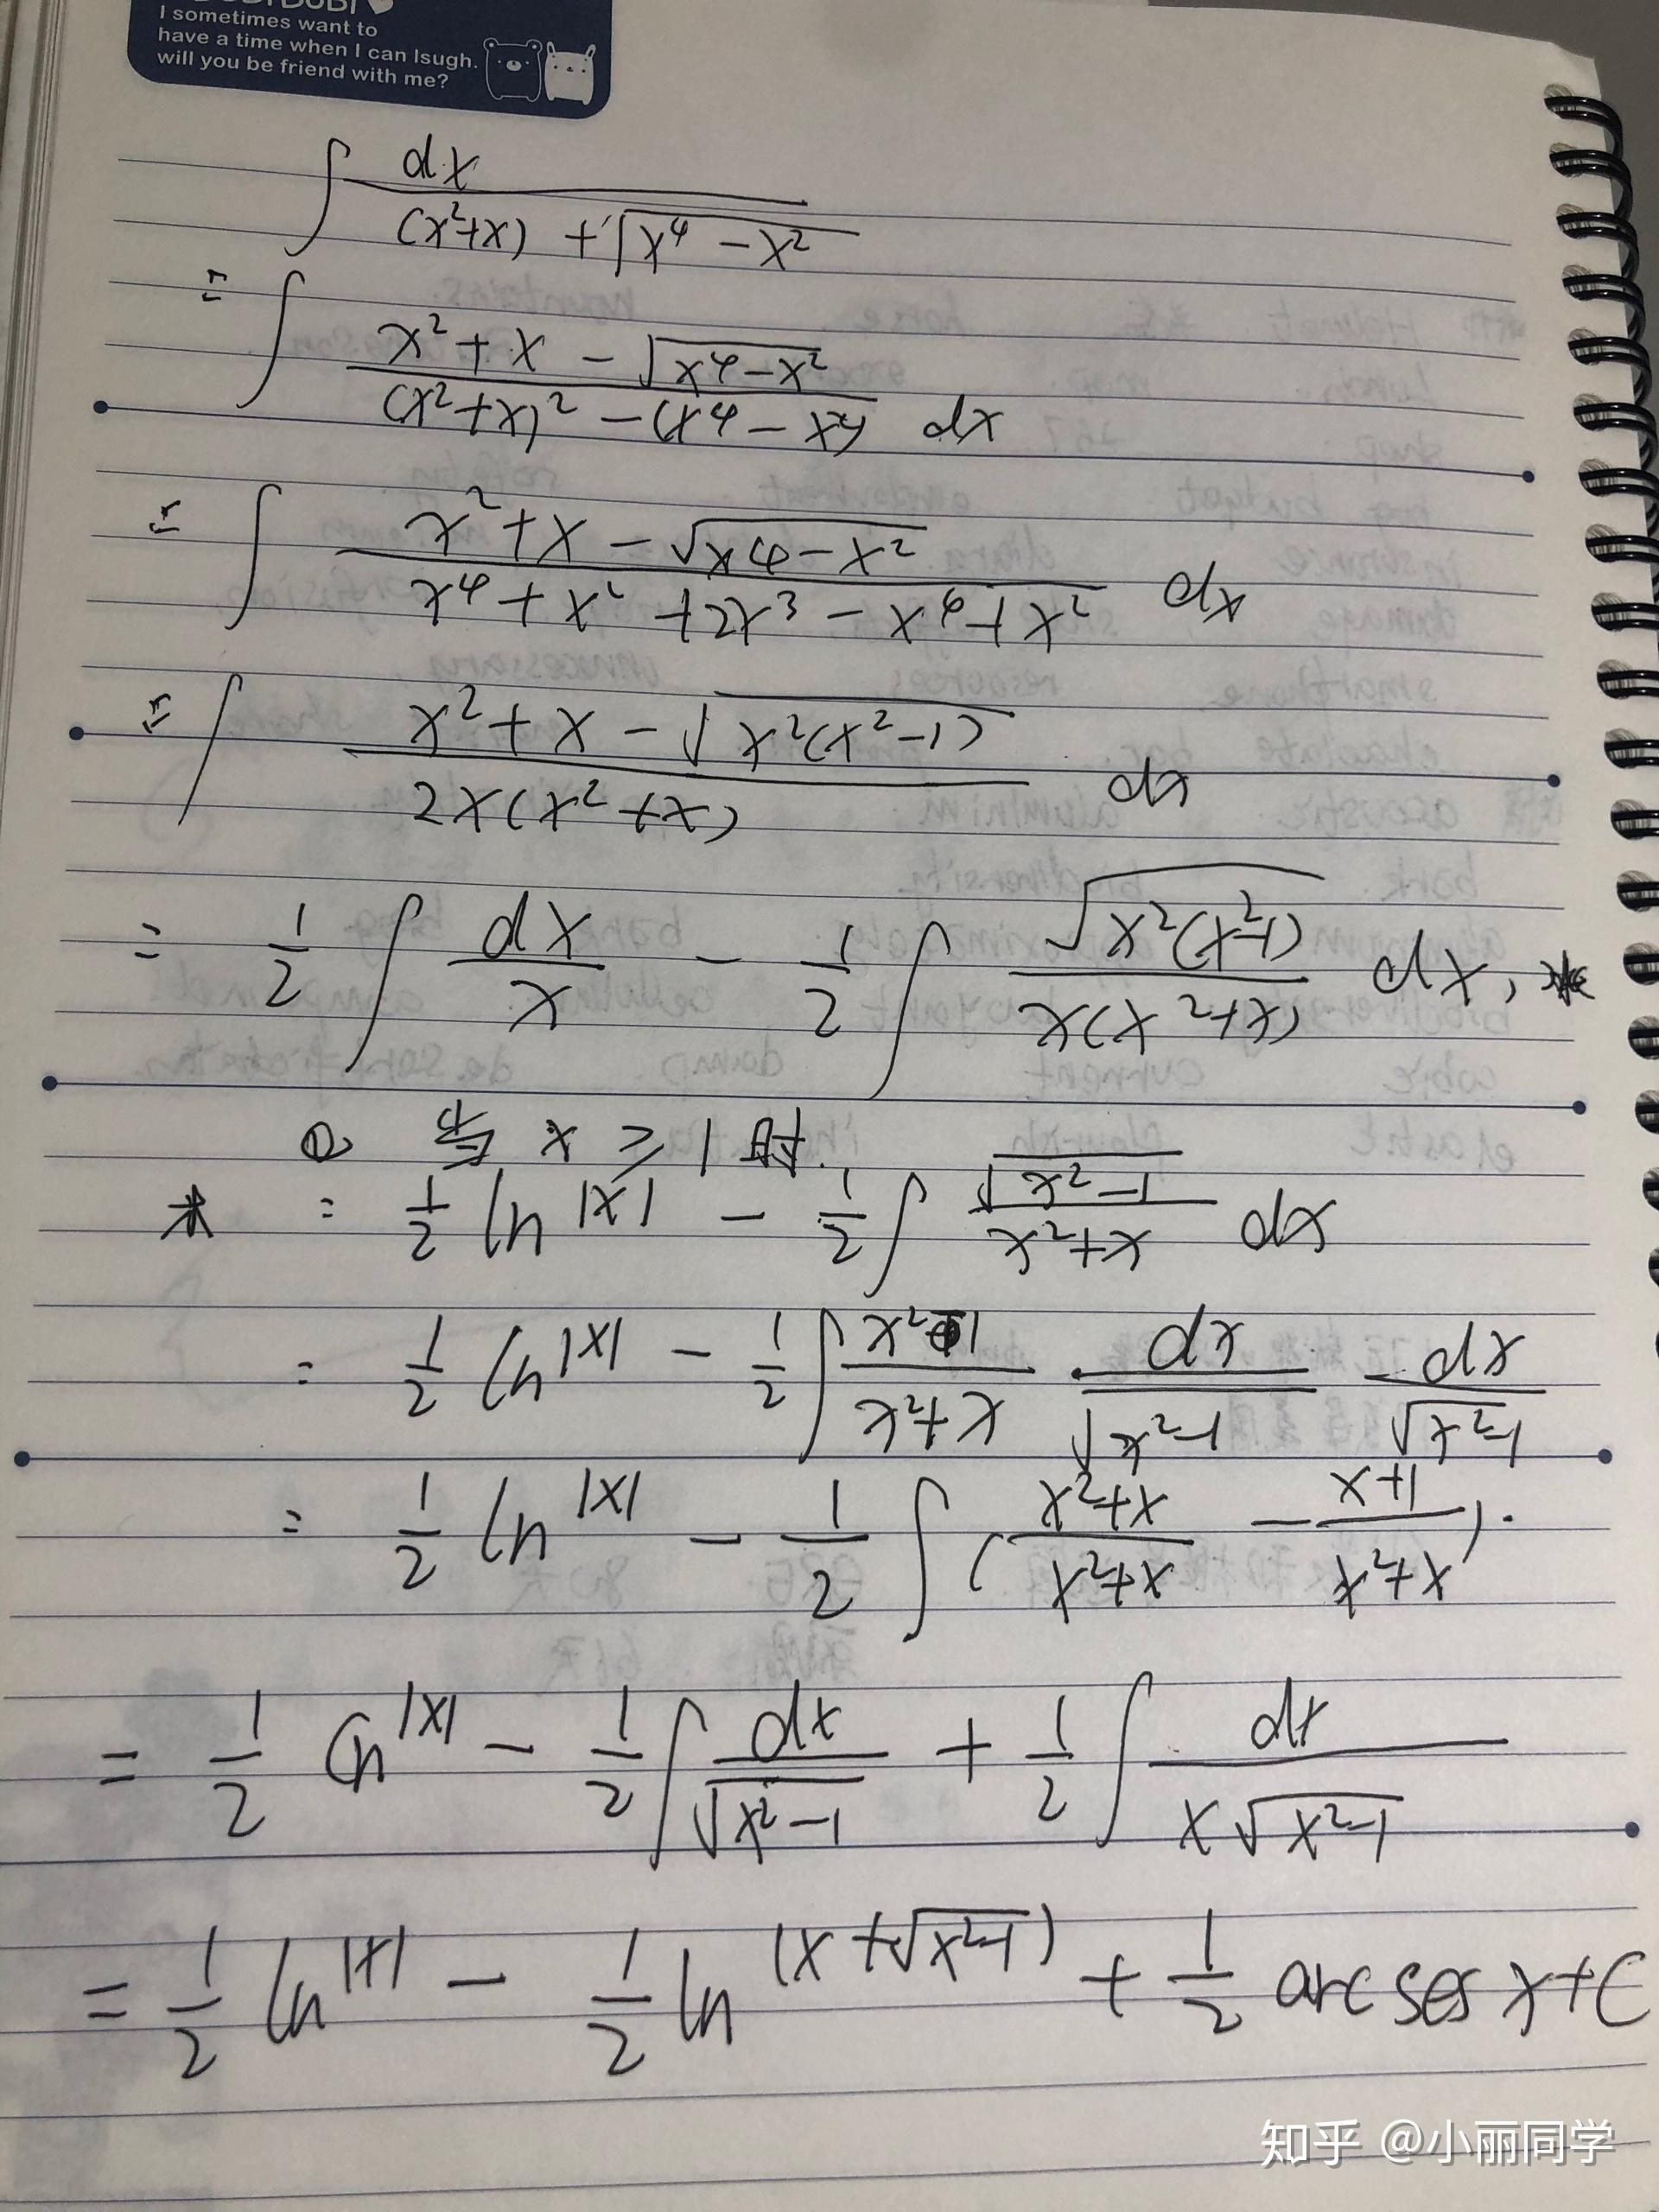 I sometimes want to
have a time when I can lsugh.
will you be friend with me?
∫ dx / ((x²+x) + √(x⁴ − x²))
= ∫ (x² + x − √(x⁴−x²)) / ((x²+x)² − (x⁴ − x²)) dx
= ∫ (x² + x − √(x⁴ − x²)) / (x⁴ + x² + 2x³ − x⁴ + x²) dx
= ∫ (x² + x − √(x²(x²−1))) / (2x(x²+x)) dx
= 1/2 ∫ dx/x − 1/2 ∫ √(x²(x²−1)) / (x(x²+x)) dx, *
① 当 x ≥ 1 时.
* = 1/2 ln|x| − 1/2 ∫ √(x²−1) / (x²+x) dx
= 1/2 ln|x| − 1/2 ∫ (x²−1)/(x²+x) · dx/√(x²−1)
= 1/2 ln|x| − 1/2 ∫ ((x²+x)/(x²+x) − (x+1)/(x²+x)) · dx/√(x²−1)
= 1/2 ln|x| − 1/2 ∫ dx/√(x²−1) + 1/2 ∫ dx/(x√(x²−1))
= 1/2 ln|x| − 1/2 ln(x+√(x²−1)) + 1/2 arc ses x + C
知乎 @小丽同学